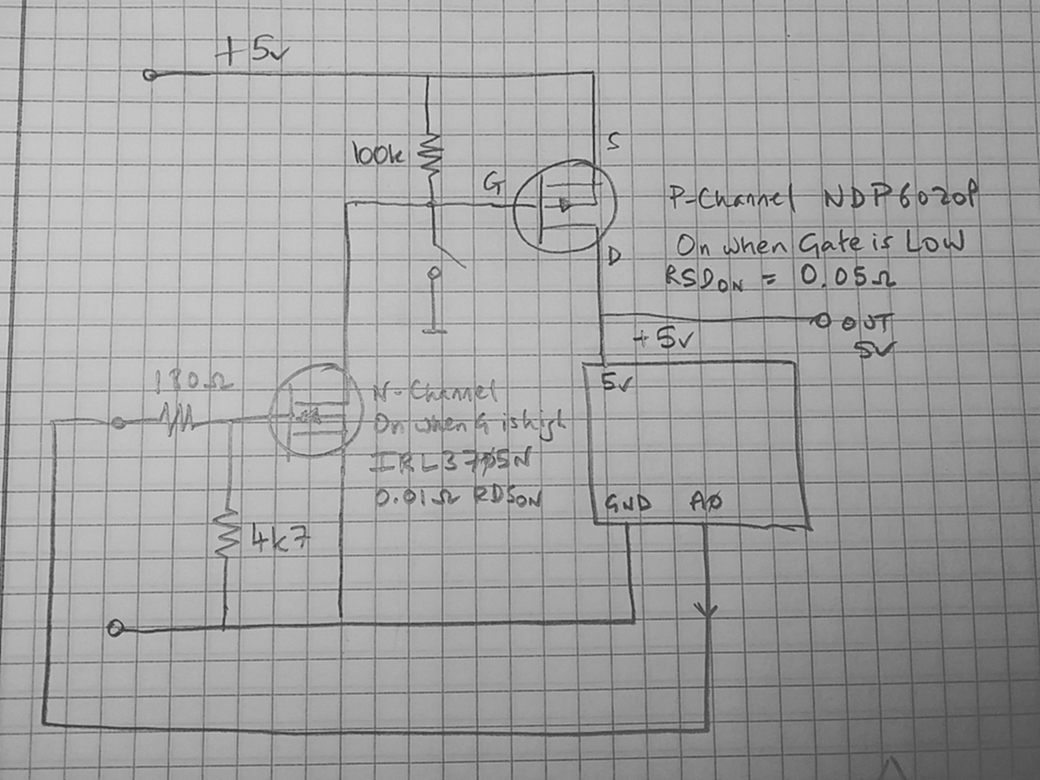 +5v
100k
S
G
D
P-Channel NDP6020P
On when Gate is Low
RSDON = 0.05Ω
OUT
5V
+5v
5v
GND AØ
180Ω
N-Channel
On when G is high
IRL3705N
0.01Ω RDSON
4k7